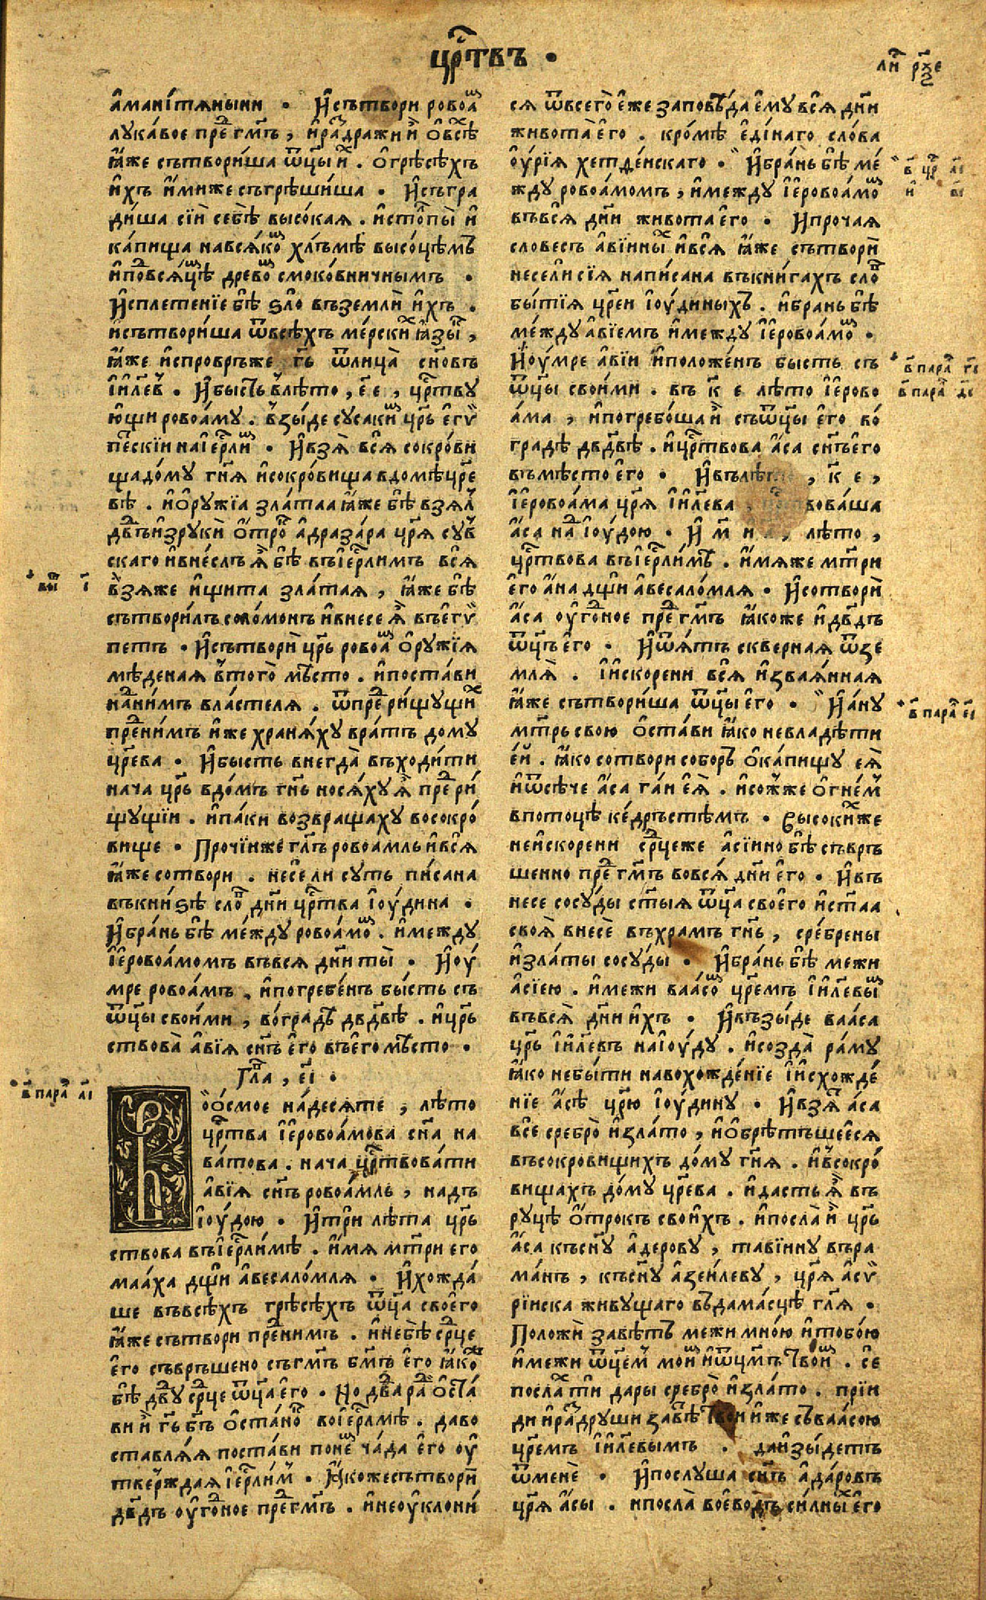 црⷭ҇твъ ·
ли рѯе
а҆мані́тѧныни · И҆сътвори ровоа́ⷨ
лука́вое преⷣ гмⷭ҇ъ , и҆раⷥдражи и҆̀ ѻ҆все́ⷯ
ꙗ҆́же сътвори́ша ѿц҃ы иⷯ . ѻ҆грѣсѣ́хъ
и҆́хъ и҆́миже съгрѣши́ша · И҆съгра
ди́ша сїѝ себѣ̀ высо́каѧ . и҆сто́пы̀ и҆
ка́пища навсѧ́коⷨ хлъмѣ̀ высо́цѣмъ
и҆поⷣвсѧ́цѣⷨ древоⷨ смоко́вничнымъ ·
И҆сплетенїе бѣ̀ ѕло̀ въземлѝ и҆́хъ .
и҆сътвори́ша ѿвсѣ́хъ ме́рскиⷯ ꙗ҆зыⷦ ,
ꙗ҆́же и҆спровръже гⷭ҇ь ѿлица̀ сн҃овъ
і҆и҃левⷯ . И҆бысть влѣ́то , є҃ е , црⷭ҇тву
ю҆щи ровоа́му . взы́де суса́киⷨ цр҃ь є҆гѵⷫ
тⷭ҇скїи наі҆ерⷭ҇ли́ⷨ · И҆взѧ̀ всѧ̀ сокро́ви
ща до́му гнⷭ҇ѧ и҆сокро́вища вдомꙋ̀ цр҃е
вѣ̀ . и҆ѻ҆ру́жїа зла́таа ꙗ҆́же бѣ̀ взѧ́л
дв҃дъ и҆зрукѝ ѻ҆́троⷦ а҆драза́ра цр҃ѧ су́вⷭ
скаго и҆внесе́лъ ѧ҆̀ бѣ̀ въі҆ерⷭ҇ли́мъ всѧ̀
взѧ́же и҆щита̀ зла́таѧ , ꙗ҆́же бѣ̀
сътвори́лъ соломо́нъ и҆внесе ѧ҆̀ въе҆гѵⷫ
петъ · И҆сътворѝ цр҃ь ровоаⷨ ѻ҆ру́жїѧ
мѣ́денаѧ в̾того̀ мѣсто . и҆поста́ви
наⷣни́мъ вла́стелѧ . ѿпреⷣ ри́щущиⷯ
преⷣни́мъ и҆̀же хранѧ́ху врата̀ до́му
цр҃ева · И҆бысть внегда̀ въходи́ти
нача цр҃ь вдо́мъ гнⷭ҇ь носѧ́ху ѧ҆̀ преⷣ ри́
щущїи . и҆па́ки возвраща́ху восокро́
вище · Прочїи́же гл҃ъ ровоа́мль и҆всѧ̀
ꙗ҆́же сотвори . несе ли суть пи́сана
въкни́ѕѣ слоⷡ дн҃и црⷭ҇тва і҆оу́дина ·
И҆бра́нь бѣ̀ ме́жду ровоа́моⷨ . и҆между
і҆еровоа́момъ въвсѧ̀ дн҃и ты̀ · И҆оу
мре ровоа́мъ , и҆погребе́нъ бы́сть съ
ѿц҃ы свои́ми , во́градѣ дв҃двѣ . и҆цр҃ь
ствова̀ а҆ви́ѧ сн҃ъ є҆го̀ въе҆го̀ мѣсто ·
Гл҃а , е҃і ·
Во́смое на́десѧте , лѣ́то
црⷭ҇тва і҆еровоа́мова сн҃а на
ва́това . нача црⷭ҇твова́ти
а҆ви́ѧ сн҃ъ ровоа́мль , надъ
і҆оу́дою · И҆три лѣ́та цр҃ь
ствова въі҆ерⷭ҇ли́мѣ . и҆́мѧ мт҃ри его
мааха дщ҃и а҆весало́млѧ · И҆хожда́
ше въвсѣ́хъ грѣсѣ́хъ ѿц҃а своего̀
ꙗ҆́же сътвори преⷣни́мъ . и҆небѣ̀ срⷣце
є҆го̀ съвръшено̀ съгмⷭ҇ъ бг҃мъ є҆го̀ ꙗ҆́коⷤ
бѣ̀ дв҃ду срⷣце ѿц҃а є҆го̀ · Но дв҃да раⷣ ѻ҆ста́
ви и҆̀ гь бг҃ъ ѻ҆ста́ноⷦ воі҆ерⷭ҇лмѣ . даво
ставлѧ́ѧ поста́ви понеⷨ ча́да є҆го̀ оу҆
твержда́ѧ і҆ерⷭ҇ли́мⷨ · Ꙗ҆́коже сътворѝ
дв҃дъ оу҆го́ⷣное преⷣ гмⷭ҇ъ . и҆неоу҆клони
сѧ ѿвсего̀ є҆́же заповѣ́да є҆му̀ всѧ̀ дн҃и
живота̀ є҆го̀ . кро́мѣ є҆ди́наго сло́ва
оу҆рі́ѧ хеттде́нскаго · И҆бра́нь бѣ̀ ме́
жду ровоа́момъ , и҆между і҆еровоа́моⷨ
въвсѧ̀ дн҃и живота̀ є҆го̀ · И҆прочаѧ
словесъ а҆ви́инныⷯ и҆всѧ̀ ꙗ҆́же сътворѝ
несели сїѧ̀ написана въкни́гахъ слоⷡ
бы́тїѧ цр҃еи і҆оу́диныхъ . и҆бра́нь бѣ̀
ме́жду а҆ви́емъ и҆между і҆еровоа́моⷨ ·
И҆оу́мре а҆ви́и и҆положе́нъ бысть съ
ѿц҃ы свои́ми . въ к҃ е лѣто і҆ерово
а́ма , и҆погребо́ша и҆̀ съѿц҃ы є҆го̀ во́
градѣ дв҃двѣ . и҆црⷭ҇твова а҆́са сн҃ъ є҆го̀
въмѣ́сто є҆го̀ · И҆въ , к҃ е ,
і҆еровоа́ма цр҃ѧ і҆и҃лева
а҆́са наⷣ і҆оу́дою · И҆ м҃ , лѣто ,
црⷭ҇твова въі҆ерⷭ҇ли́мѣ . и҆́мѧже мт҃ри
є҆го̀ а҆на дщ҃и а҆весало́млѧ · И҆сотворѝ
а҆́са оу҆го́ⷣное преⷣ гмⷭ҇ъ ꙗ҆́коже и҆дв҃дъ
ѿц҃ъ є҆го̀ · И҆ѿѧ́тъ скве́рнаѧ ѿзе
млѧ̀ . і҆искоренѝ всѧ̀ и҆зваѧ́ннаѧ
ꙗ҆́же сътвори́ша ѿц҃ы є҆го̀ · И҆а҆́ну
мт҃рь свою ѻ҆ста́ви ꙗ҆́ко невладѣ́ти
є҆́и . ꙗ҆́ко сотвори соборъ ѻ҆ка́пищу є҆ѧ̀
и҆ѿсѣ́че а҆́са га́и є҆ѧ̀ . и҆сожже ѻ҆гне́мⷨ
впотоцѣ̀ ке́дръстѣмъ · Высокиⷯже
неи́скорени срⷣцеже а҆сі́ино бѣ̀ съвръ
шенно преⷣ гмⷭ҇ъ вовсѧ̀ дн҃и є҆го̀ · И҆въ
несе сосу́ды ст҃ыѧ ѿц҃а своего̀ и҆ст҃аа
своѧ̀ внесѐ въхра́мъ гнⷭ҇ь , сре́брены
и҆зла́ты сосу́ды · И҆бра́нь бѣ̀ межи
а҆сі́ею . и҆межи ваа́соⷨ цр҃емъ і҆и҃левыⷨ
въвсѧ̀ дн҃и и҆́хъ · И҆възы́де ваа́са
цр҃ь і҆и҃левъ наі҆оу́ду . и҆созда̀ ра́му
ꙗ҆́ко небы́ти навохожде́нїе і҆исхожде́
нїе а҆́сѣ цр҃ю і҆оу́дину · И҆взѧ̀ а҆́са
все сребро̀ и҆зла́то , и҆ѻ҆брѣ́тъшееⷭ҇ѧ
въсокро́вищихъ до́му гнⷭ҇ѧ . и҆всокро́
вищахъ до́му цр҃ева . и҆да́сть ѧ҆̀ въ
ру́цѣ ѻ҆́трокъ свои́хъ . и҆посла̀ и҆̀ цр҃ь
а҆́са къ сн҃у а҆де́рову , тави́инну въра
ма́нъ , къ сн҃у а҆зеи́леву , цр҃ѧ а҆сѵⷬ
рі́иска живу́щаго въдама́сцѣ гл҃ѧ ·
Положѝ завѣ́тъ межи мно́ю и҆тобо́ю
и҆межи ѿц҃емⷨ моиⷨ и҆ѿц҃мъ твоиⷨ . се́
посла́хти дары сребро̀ и҆зла́то . прїи
ди и҆раⷥдруши завѣ́тъ твои и҆́же съваа́сою
цр҃емъ і҆и҃левымъ . даи҆зы́детъ
ѿменѐ · И҆послуша сн҃ъ а҆да́ровъ
цр҃ѧ а҆́сы . и҆посла̀ воево́дъ си́лныⷯ є҆го̀